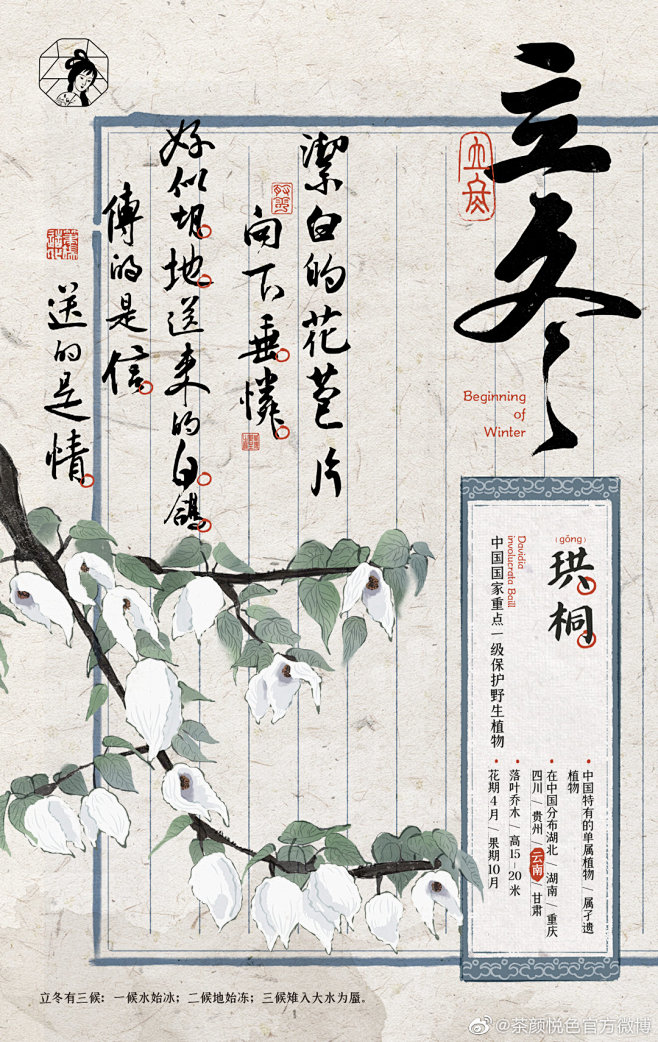 立冬
Beginning
of
Winter
潔白的花苞片
向下垂憐
好似胡地送来的白鴿
傳的是信
送的是情
(gǒng)
珙桐
Davidia
involucrata Baill
中国国家重点一级保护野生植物
中国特有的单属植物/属孑遗
植物
在中国分布湖北/湖南/重庆
四川/贵州/云南/甘肃
落叶乔木/高15-20米
花期4月/果期10月
立冬有三候：一候水始冰；二候地始冻；三候雉入大水为蜃。
@茶颜悦色官方微博